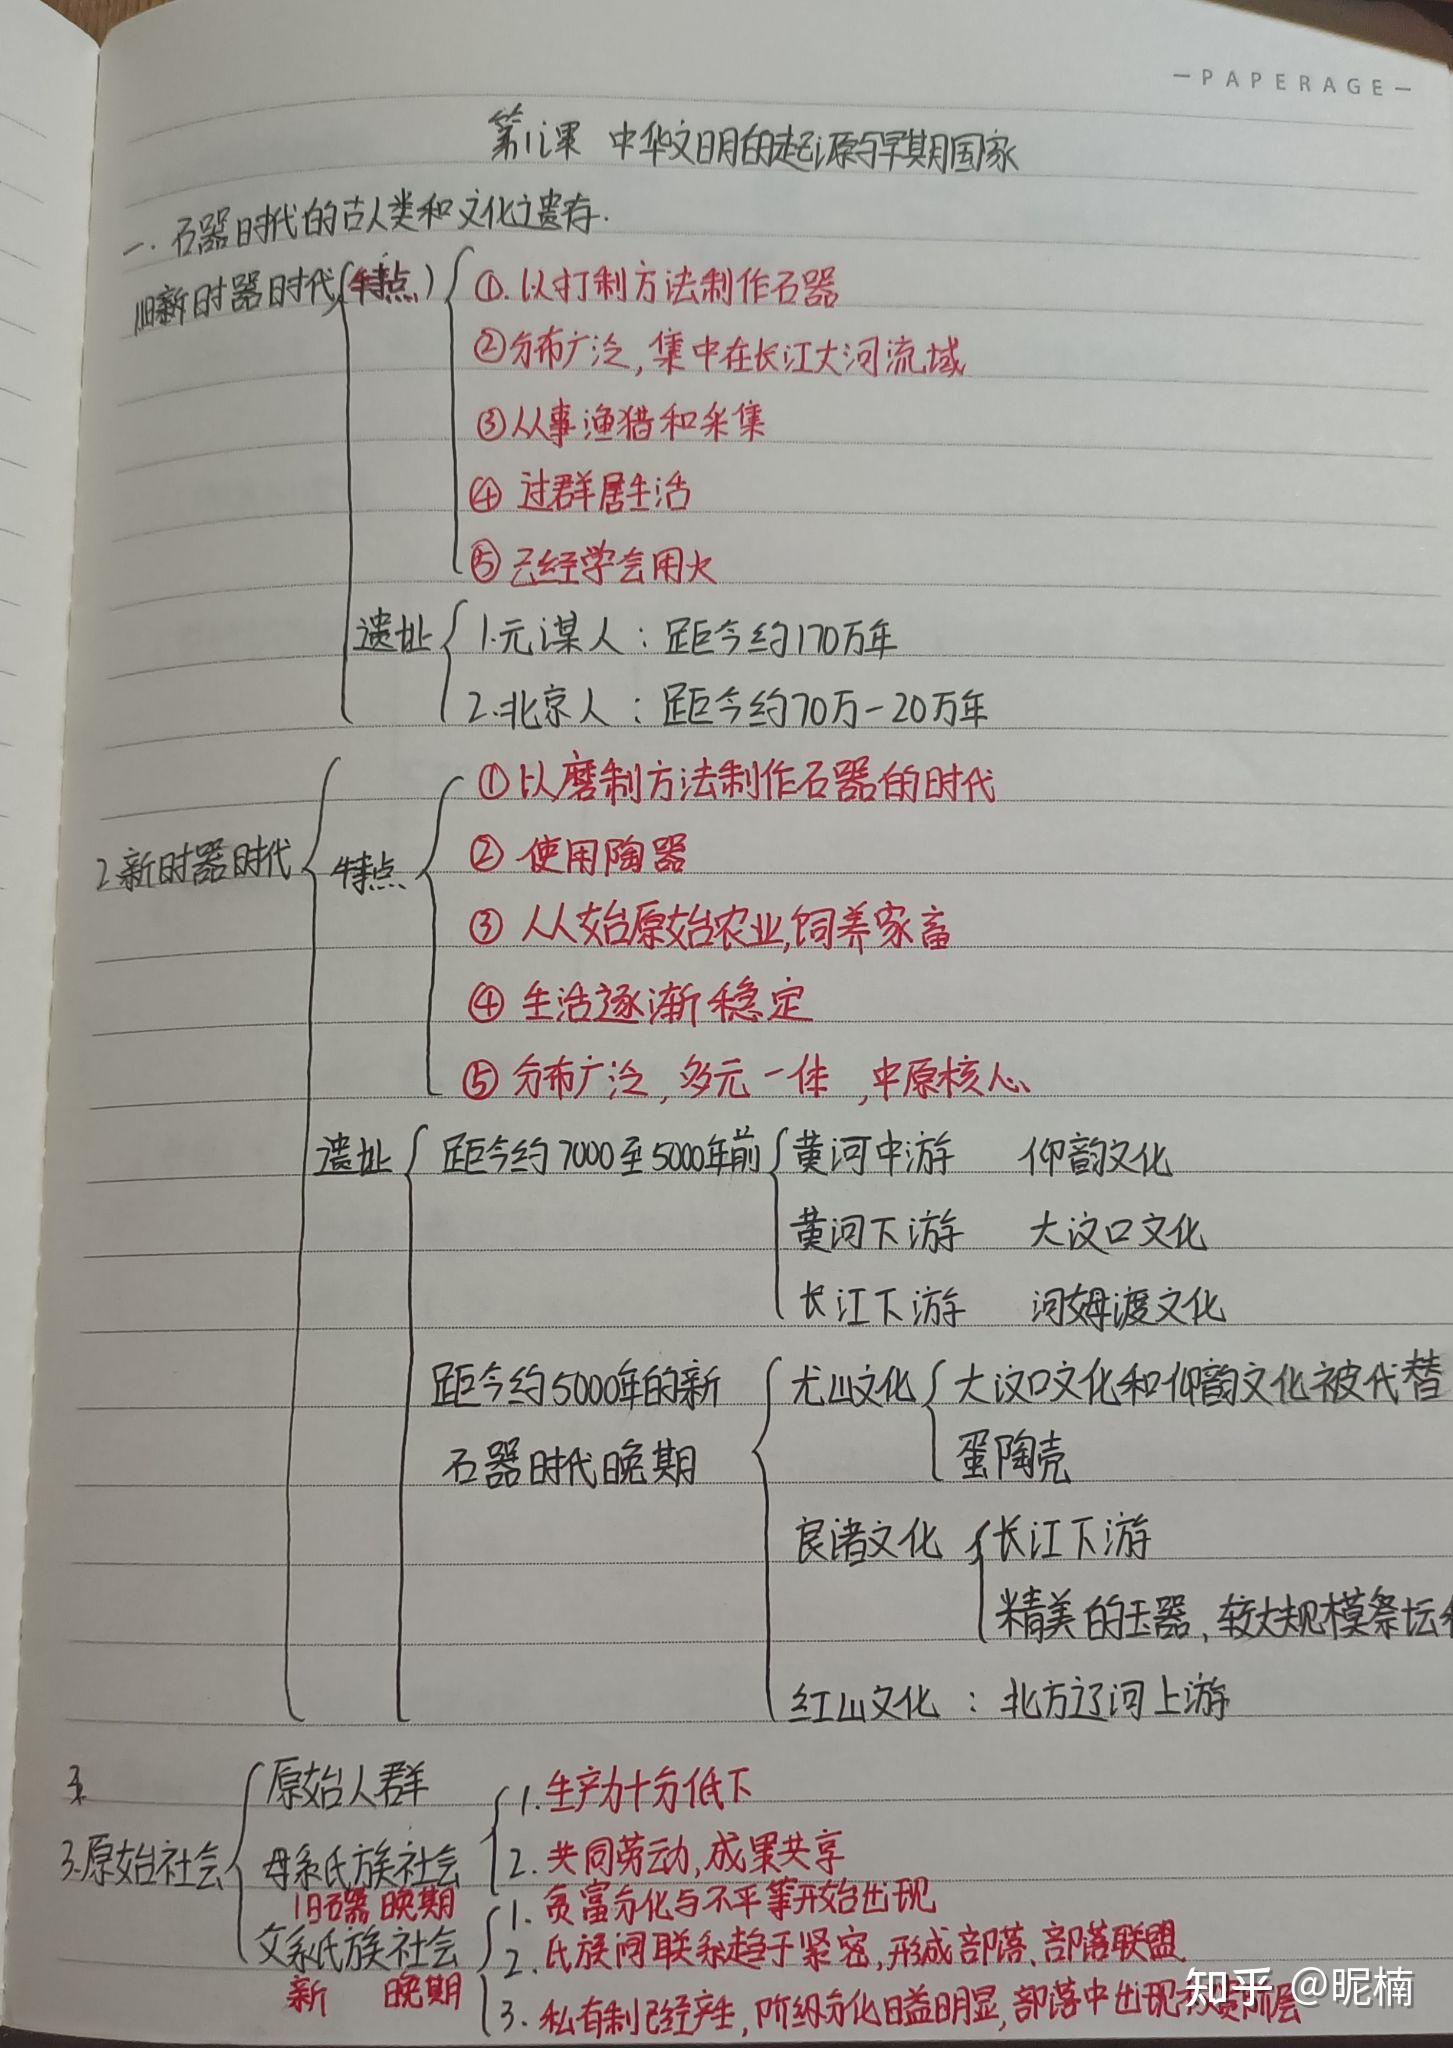 PAPERAGE
第1课 中华文明的起源与早期国家
一.石器时代的古人类和文化遗存.
旧新时器时代(特点)
①.以打制方法制作石器
②分布广泛,集中在长江大河流域
③从事渔猎和采集
④过群居生活
⑤已经学会用火
遗址 1.元谋人:距今约170万年
2.北京人:距今约70万-20万年
2.新时器时代 特点
①以磨制方法制作石器的时代
②使用陶器
③人从始原始农业,饲养家畜
④生活逐渐稳定
⑤分布广泛,多元一体,中原核心
遗址 距今约7000至5000年前 黄河中游 仰韵文化
黄河下游 大汶口文化
长江下游 河姆渡文化
距今约5000年的新 尤山文化 大汶口文化和仰韵文化被代替
石器时代晚期 蛋陶壳
良渚文化 长江下游
精美的玉器,较大规模祭坛
红山文化:北方辽河上游
3.原始社会 原始人群
母系氏族社会 1.生产力十分低下
2.共同劳动,成果共享
旧石器晚期
父系氏族社会 1.贫富分化与不平等开始出现
2.氏族间联系趋于紧密,形成部落、部落联盟
新 晚期
3.私有制已经产生,阶级分化日益明显,部落中出现
知乎 @昵楠